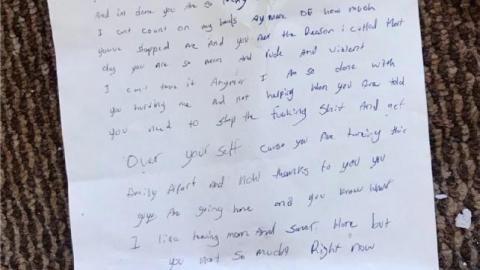 And im done you Are so
I cant count on my hands Aymore OF how much
youve slapped me And you Are the Reason i called that
day you are so mean And rude And violent
I cant take it Anymore I Am so done with
you hurting me And not helping when you Are told
you need to stop the fucking shit And get
Over your self cause you Are turning this
family Apart and right thanks to you you
guys Are going home and you know what
I like having mom And Here but
you not so much Right now